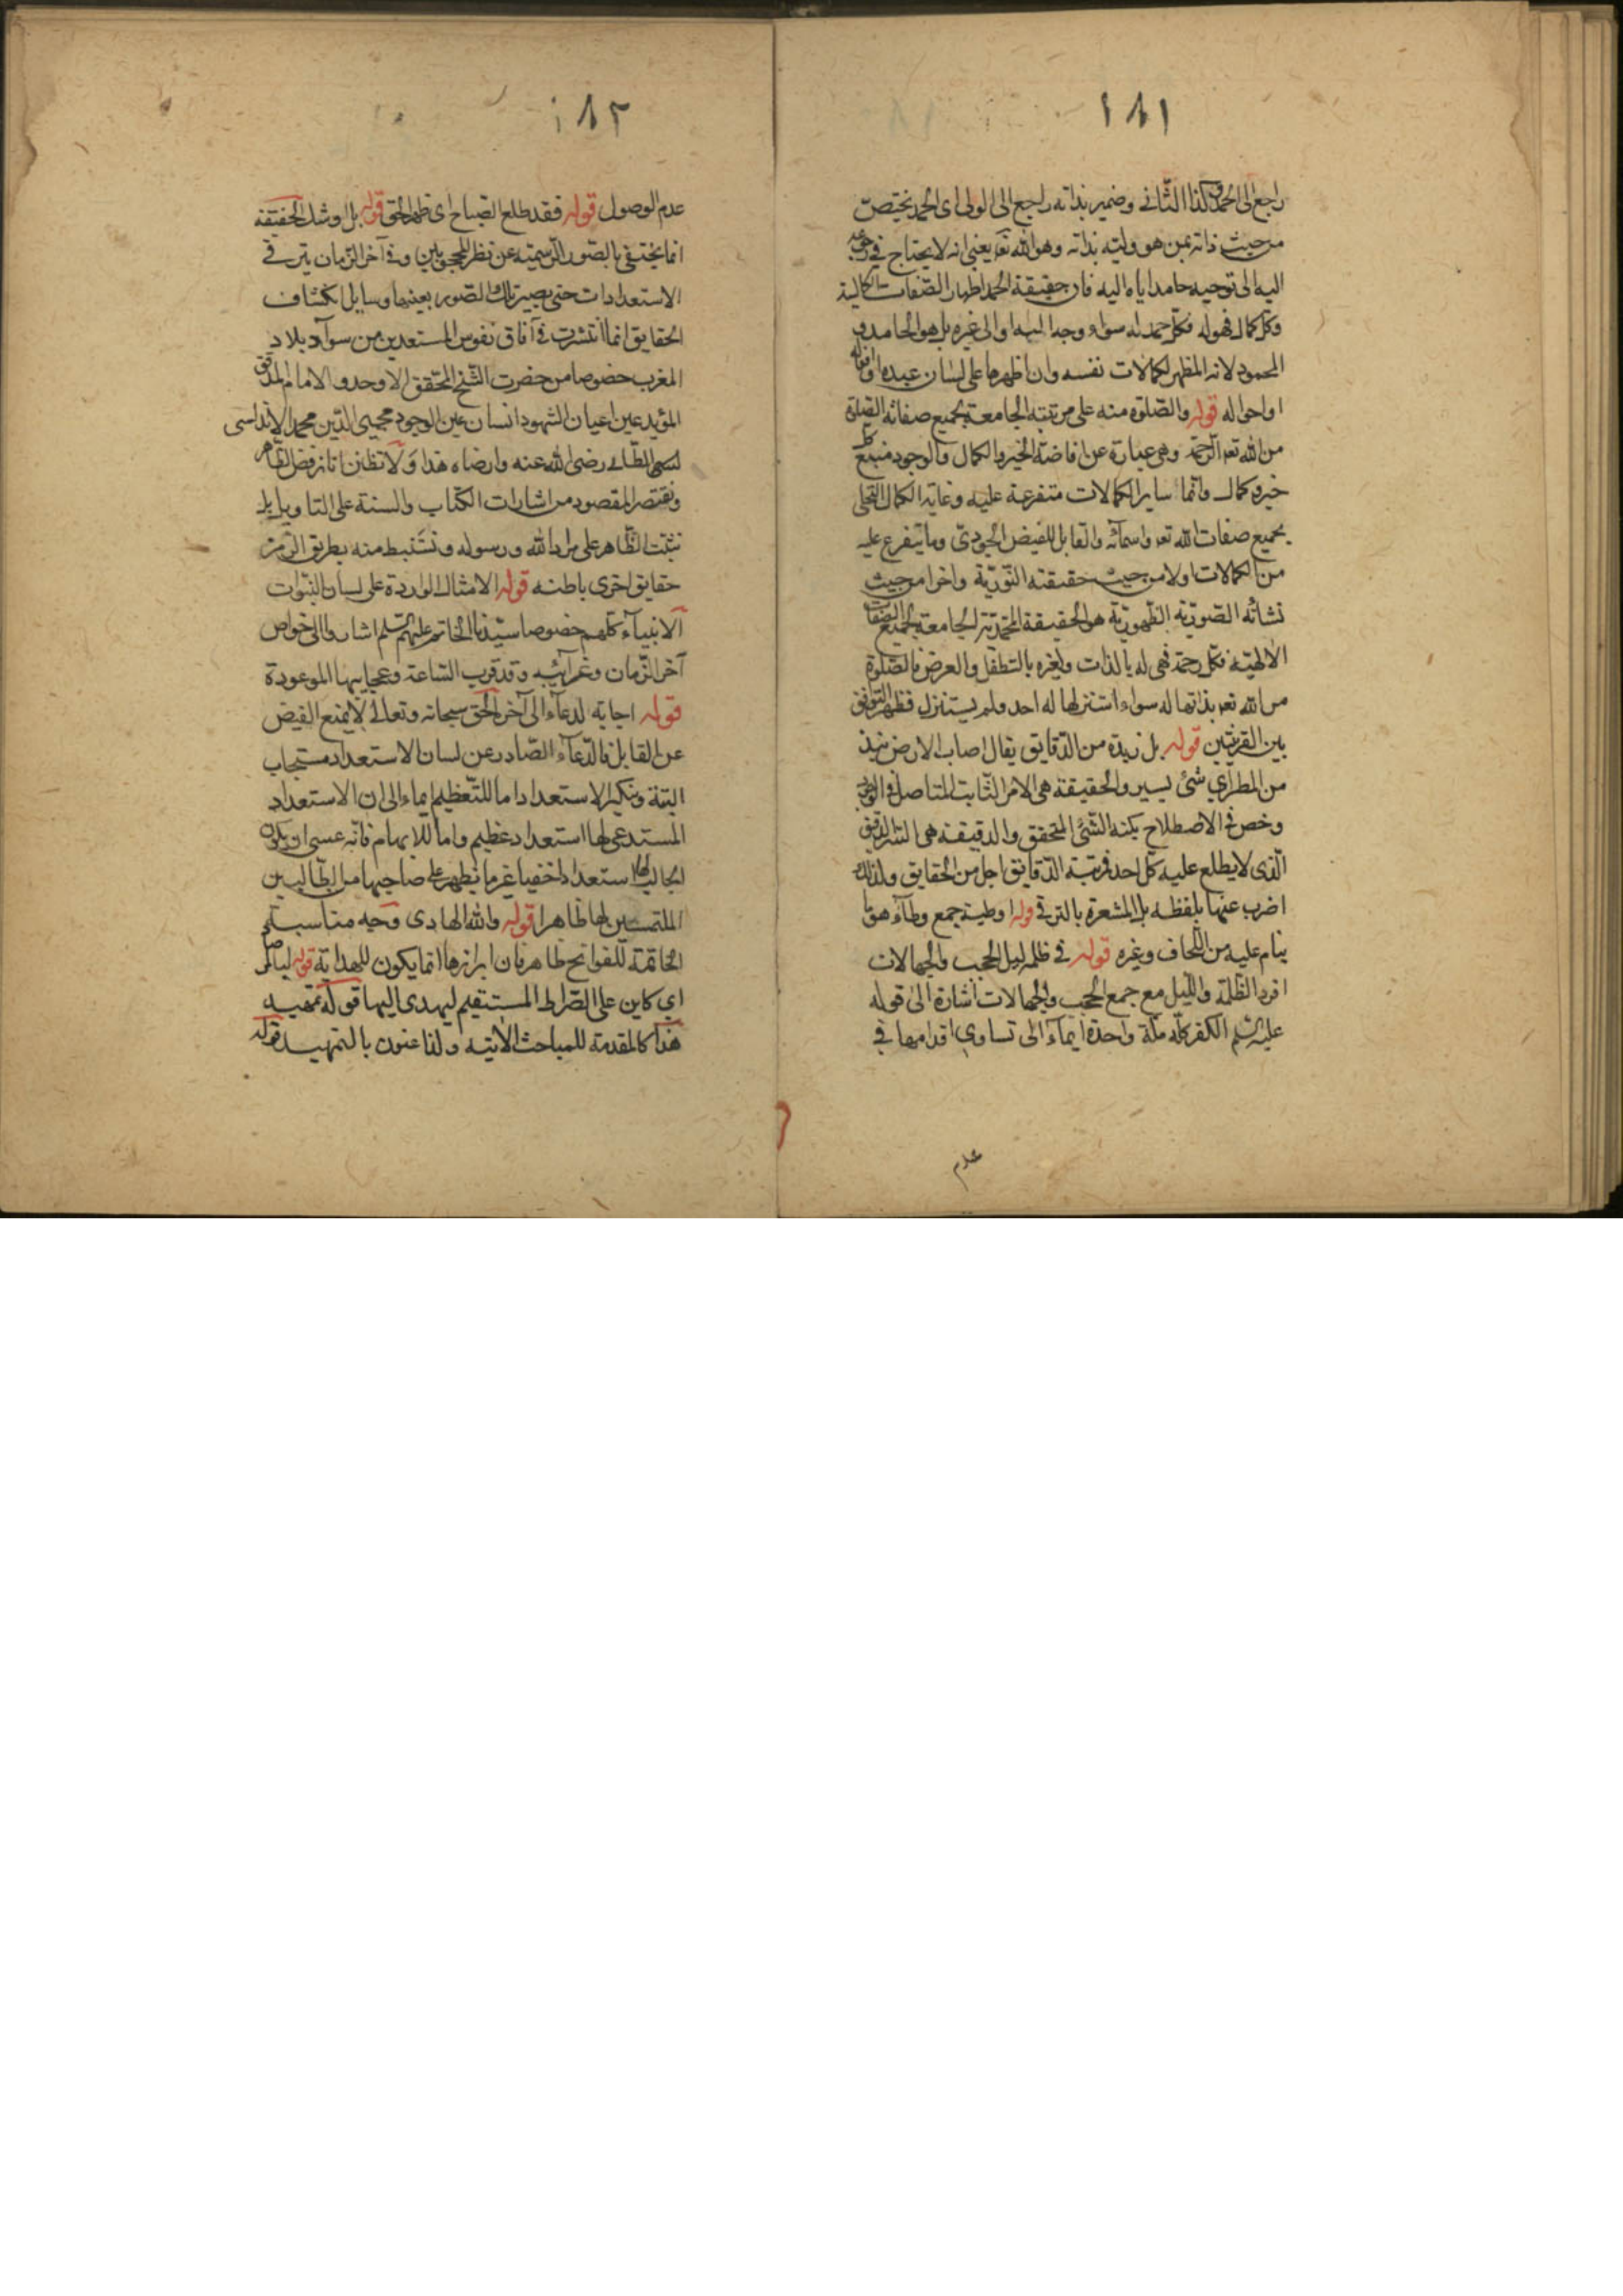 ١٨١
راجع الى الحمد وكذا الثانى وضمير بذاته راجع الى الولى اى الحمد يختص
من حيث ذاته بمن هو وليه بذاته وهو الله تعه يعنى انه لا يحتاج فى رجوعه
اليه الى توجيه حامد اياه اليه فان حقيقة الحمد اظهار الصفات الكمالية
وكل كمال فهو له فكل حمد له سواء وجه اليه او الى غيره بل هو الحامد و
المحمود لانه المظهر لكمالات نفسه وان اظهرها على لسان عبده او افعاله
او احواله قوله والصلوة منه على مرتبته الجامعة بجميع صفاته الصلوة
من الله تعه الرحمة وهى عبارة عن افاضة الخير والكمال والوجود منبع كل
خير وكمال وانما ساير الكمالات متفرعة عليه وغاية الكمال التجلى
بجميع صفات الله تعه واسمائه والقابل للفيض الجودى وما يتفرع عليه
من الكمالات اولا من حيث حقيقته النورية واخرا من حيث
نشاته الصورية الظهورية هو الحقيقة المحمدية الجامعة لجميع الصفات
الالهية فكل رحمة فهى له بالذات ولغيره بالتطفل والعرض فالصلوة
من الله تعه بذاتها له سواء استنزلها له احد ولم يستنزل فظهر التوافق
بين القرينتين قوله بل نبذة من الدقايق يقال اصاب الارض نبذ
من المطر اي شئ يسير والحقيقة هى الامر الثابت المتاصل فى الوجود
وخص فى الاصطلاح بكنه الشئ المتحقق والدقيقة هى السر الدقيق
الذى لا يطلع عليه كل احد فرتبة الدقايق اجل من الحقايق ولذلك
اضرب عنها بلفظه بل المشعرة بالترقى قوله اوطية جمع وطآء هو ما
ينام عليه من اللحاف وغيره قوله فى ظلمة ليل الحجب والجهالات
افرد الظلمة والليل مع جمع الحجب والجهالات اشارة الى قوله
عليه السلم الكفر كله ملة واحدة ايماء الى تساوي اقدامها في
عدم
١٨٢
عدم الوصول قوله فقد طلع الصباح اى ظهر الحق قوله بل اوشك الحقيقة
انما يختفى بالصور الرسمية عن نظر المحجوبين وفى آخر الزمان يترقى
الاستعدادات حتى يصير تلك الصور بعينها وسايل انكشاف
الحقايق انما انتشرت فى آفاق نفوس المستعدين من سواد بلاد
المغرب خصوصا من حضرت الشيخ المحقق الاوحد والامام المدقق
المؤيد عين اعيان الشهود انسان عين الوجود محيى الدين محمد الاندلسى
الطائى رضى الله عنه وارضاه هذا ولا تظنن انا نرفض الظاهر
ونقتصر المقصود من اشارات الكتاب والسنة على التاويل بل
نثبت الظاهر على مراد الله ورسوله ونستنبط منه بطريق الرمز
حقايق اخرى باطنه قوله الامثال الواردة على لسان النبوات
الانبياء كلهم خصوصا سيدنا الخاتم عليهم السلم اشاروا الى خواص
آخر الزمان وغرائبه وقد قرب الساعة وعجايبها الموعودة
قوله اجابه لدعاء الى آخره الحق سبحانه وتعالى لا يمنع الفيض
عن القابل فالدعاء الصادر عن لسان الاستعداد مستجاب
البتة وتنكير الاستعداد اما للتعظيم ايماء الى ان الاستعداد
المستدعى لها استعداد عظيم واما للابهام فانه عسى ان يكون
الجالب لها استعدادا خفيا غير ما يظهر على صاحبها من الطالبين
الملتمسين لها ظاهرا قوله والله الهادى وجه مناسبة
الخاتمة للفواتح ظاهر فان ابرازها انما يكون للهداية قوله
اي كاين على الصراط المستقيم ليهدى اليها قوله تمهيد
هذا كالمقدمة للمباحث الآتيه ولذا عنون بالتمهيد قوله